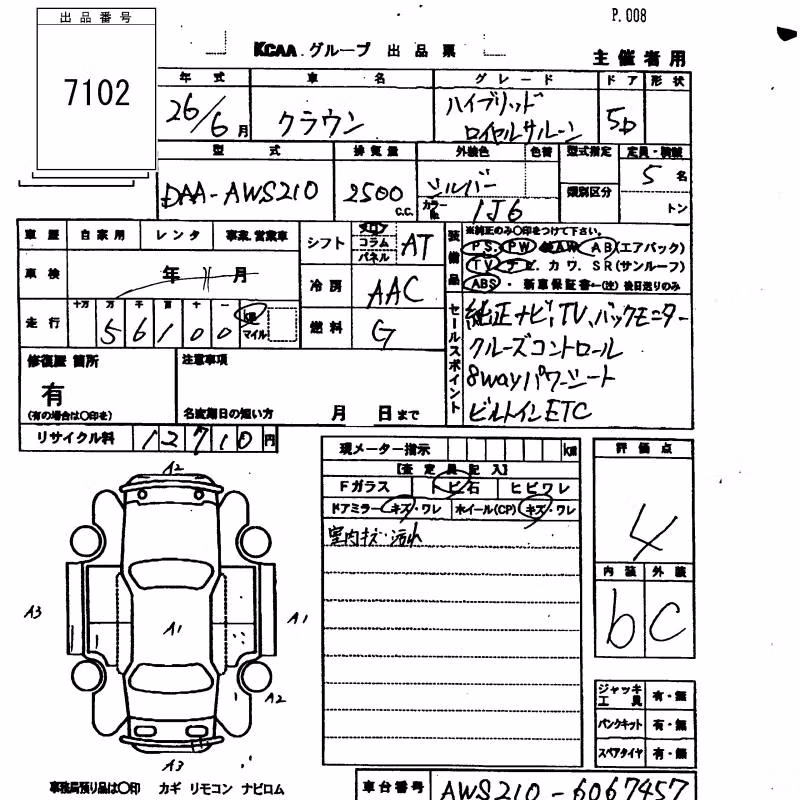 P.008
出品番号
7102
KCAA グループ 出品票
主催者用
年式 車名 グレード ドア 形状
26/6月 クラウン ハイブリッド ロイヤルサルーン 5D
型式 排気量 外装色 色替 型式指定 定員・積載
DAA-AWS210 2500 C.C. シルバー カラーNo. 1J6 類別区分 5名 トン
車歴 自家用 レンタ 事業.営業車
車検 年 月
走行 十万 万 千 百 十 一
56100 km マイル
シフト フロア コラム パネル AT
冷房 AAC
燃料 G
装備品
※純正のみ〇印をつけて下さい。
PS. PW AW AB(エアバック)
TV ナビ. カワ. SR(サンルーフ)
ABS ・ 新車保証書←(注) 後日送りのみ
セールスポイント
純正ナビ,TV,バックモニター
クルーズコントロール
8wayパワーシート
ビルトインETC
修復歴 箇所
有
(有の場合は〇印を)
注意事項
名変期日の短い方 月 日まで
リサイクル料 12710円
現メーター指示 km
【査定員記入】
Fガラス トビ石 ヒビワレ
ドアミラー キズ・ワレ ホイール(CP) キズ・ワレ
室内キズ・汚れ
評価点
4
内装 外装
b C
A2
A3
A1
A1
A2
A3
ジャッキ工具 有・無
パンクキット 有・無
スペアタイヤ 有・無
事務局預り品は〇印 カギ リモコン ナビロム
車台番号 AWS210-6067457